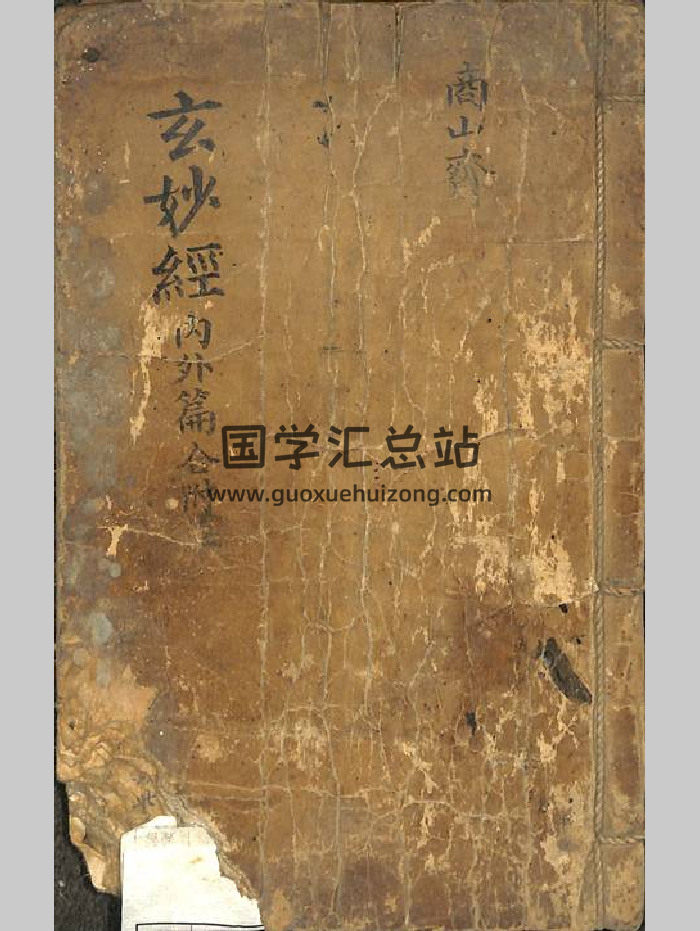 商山齋
玄妙經內外篇合附
国学汇总站
www.guoxuehuizong.com